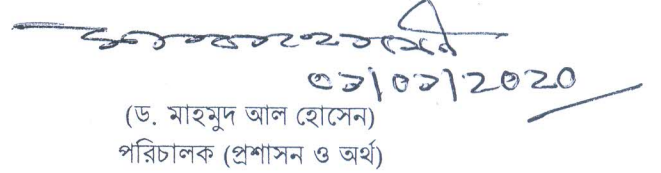 ০১|০১|2020
(ড. মাহমুদ আল হোসেন)
পরিচালক (প্রশাসন ও অর্থ)